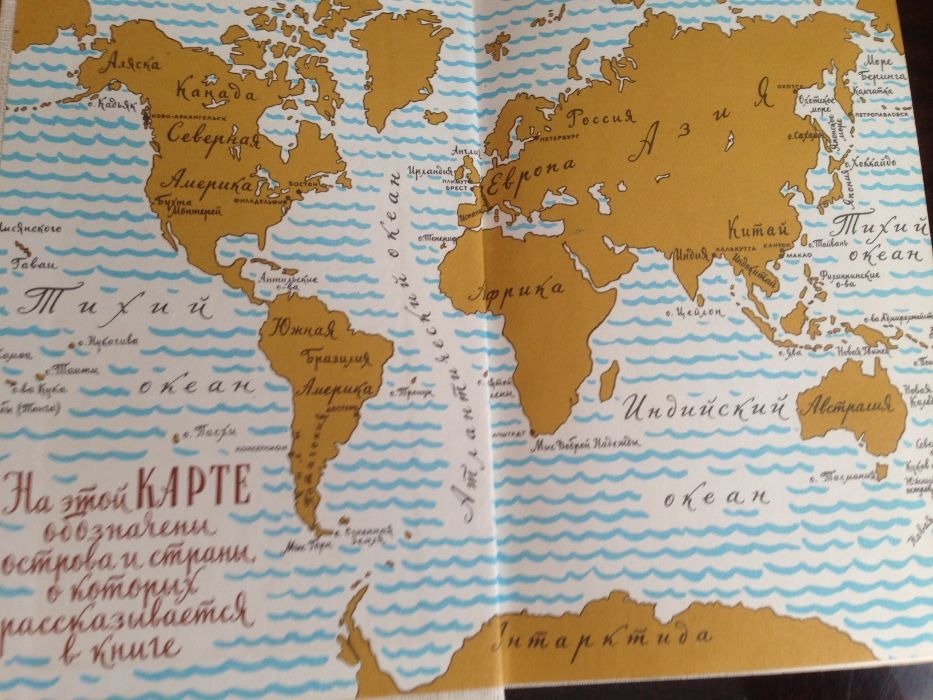 Аляска
Канада
о. Кадьяк
НОВО-АРХАНГЕЛЬСК
Северная
Америка
БОСТОН
ФИЛАДЕЛЬФИЯ
Бухта
Монтерей
Гаваи
Антильские
о-ва
Тихий
океан
о. Нукагива
о. Таити
о-ва Кука
о. Пасхи
Южная
Бразилия
Америка
Патагония
о. Троицы
Мыс Горн
о. Огненная
Земля
Атлантический океан
Англия
Ирландия
ПЛИМУТ
БРЕСТ
о. Тенериф
Европа
ПЕТЕРБУРГ
Россия
Азия
ОХОТСК
Охотское
море
Море
Беринга
Камчатка
ПЕТРОПАВЛОВСК
о. Сахалин
Японское
море
о. Хоккайдо
Япония
Китай
Индия
КАЛЬКУТТА
КАНТОН
МАКАО
Индокитай
о. Тайвань
Тихий
океан
Филиппинские
о-ва
о. Цейлон
Африка
о. Ява
Новая Гвинея
Индийский
океан
Австралия
Мыс Доброй Надежды
о. Тасмания
Антарктида
На этой КАРТЕ
обозначены
острова и страны,
о которых
рассказывается
в книге